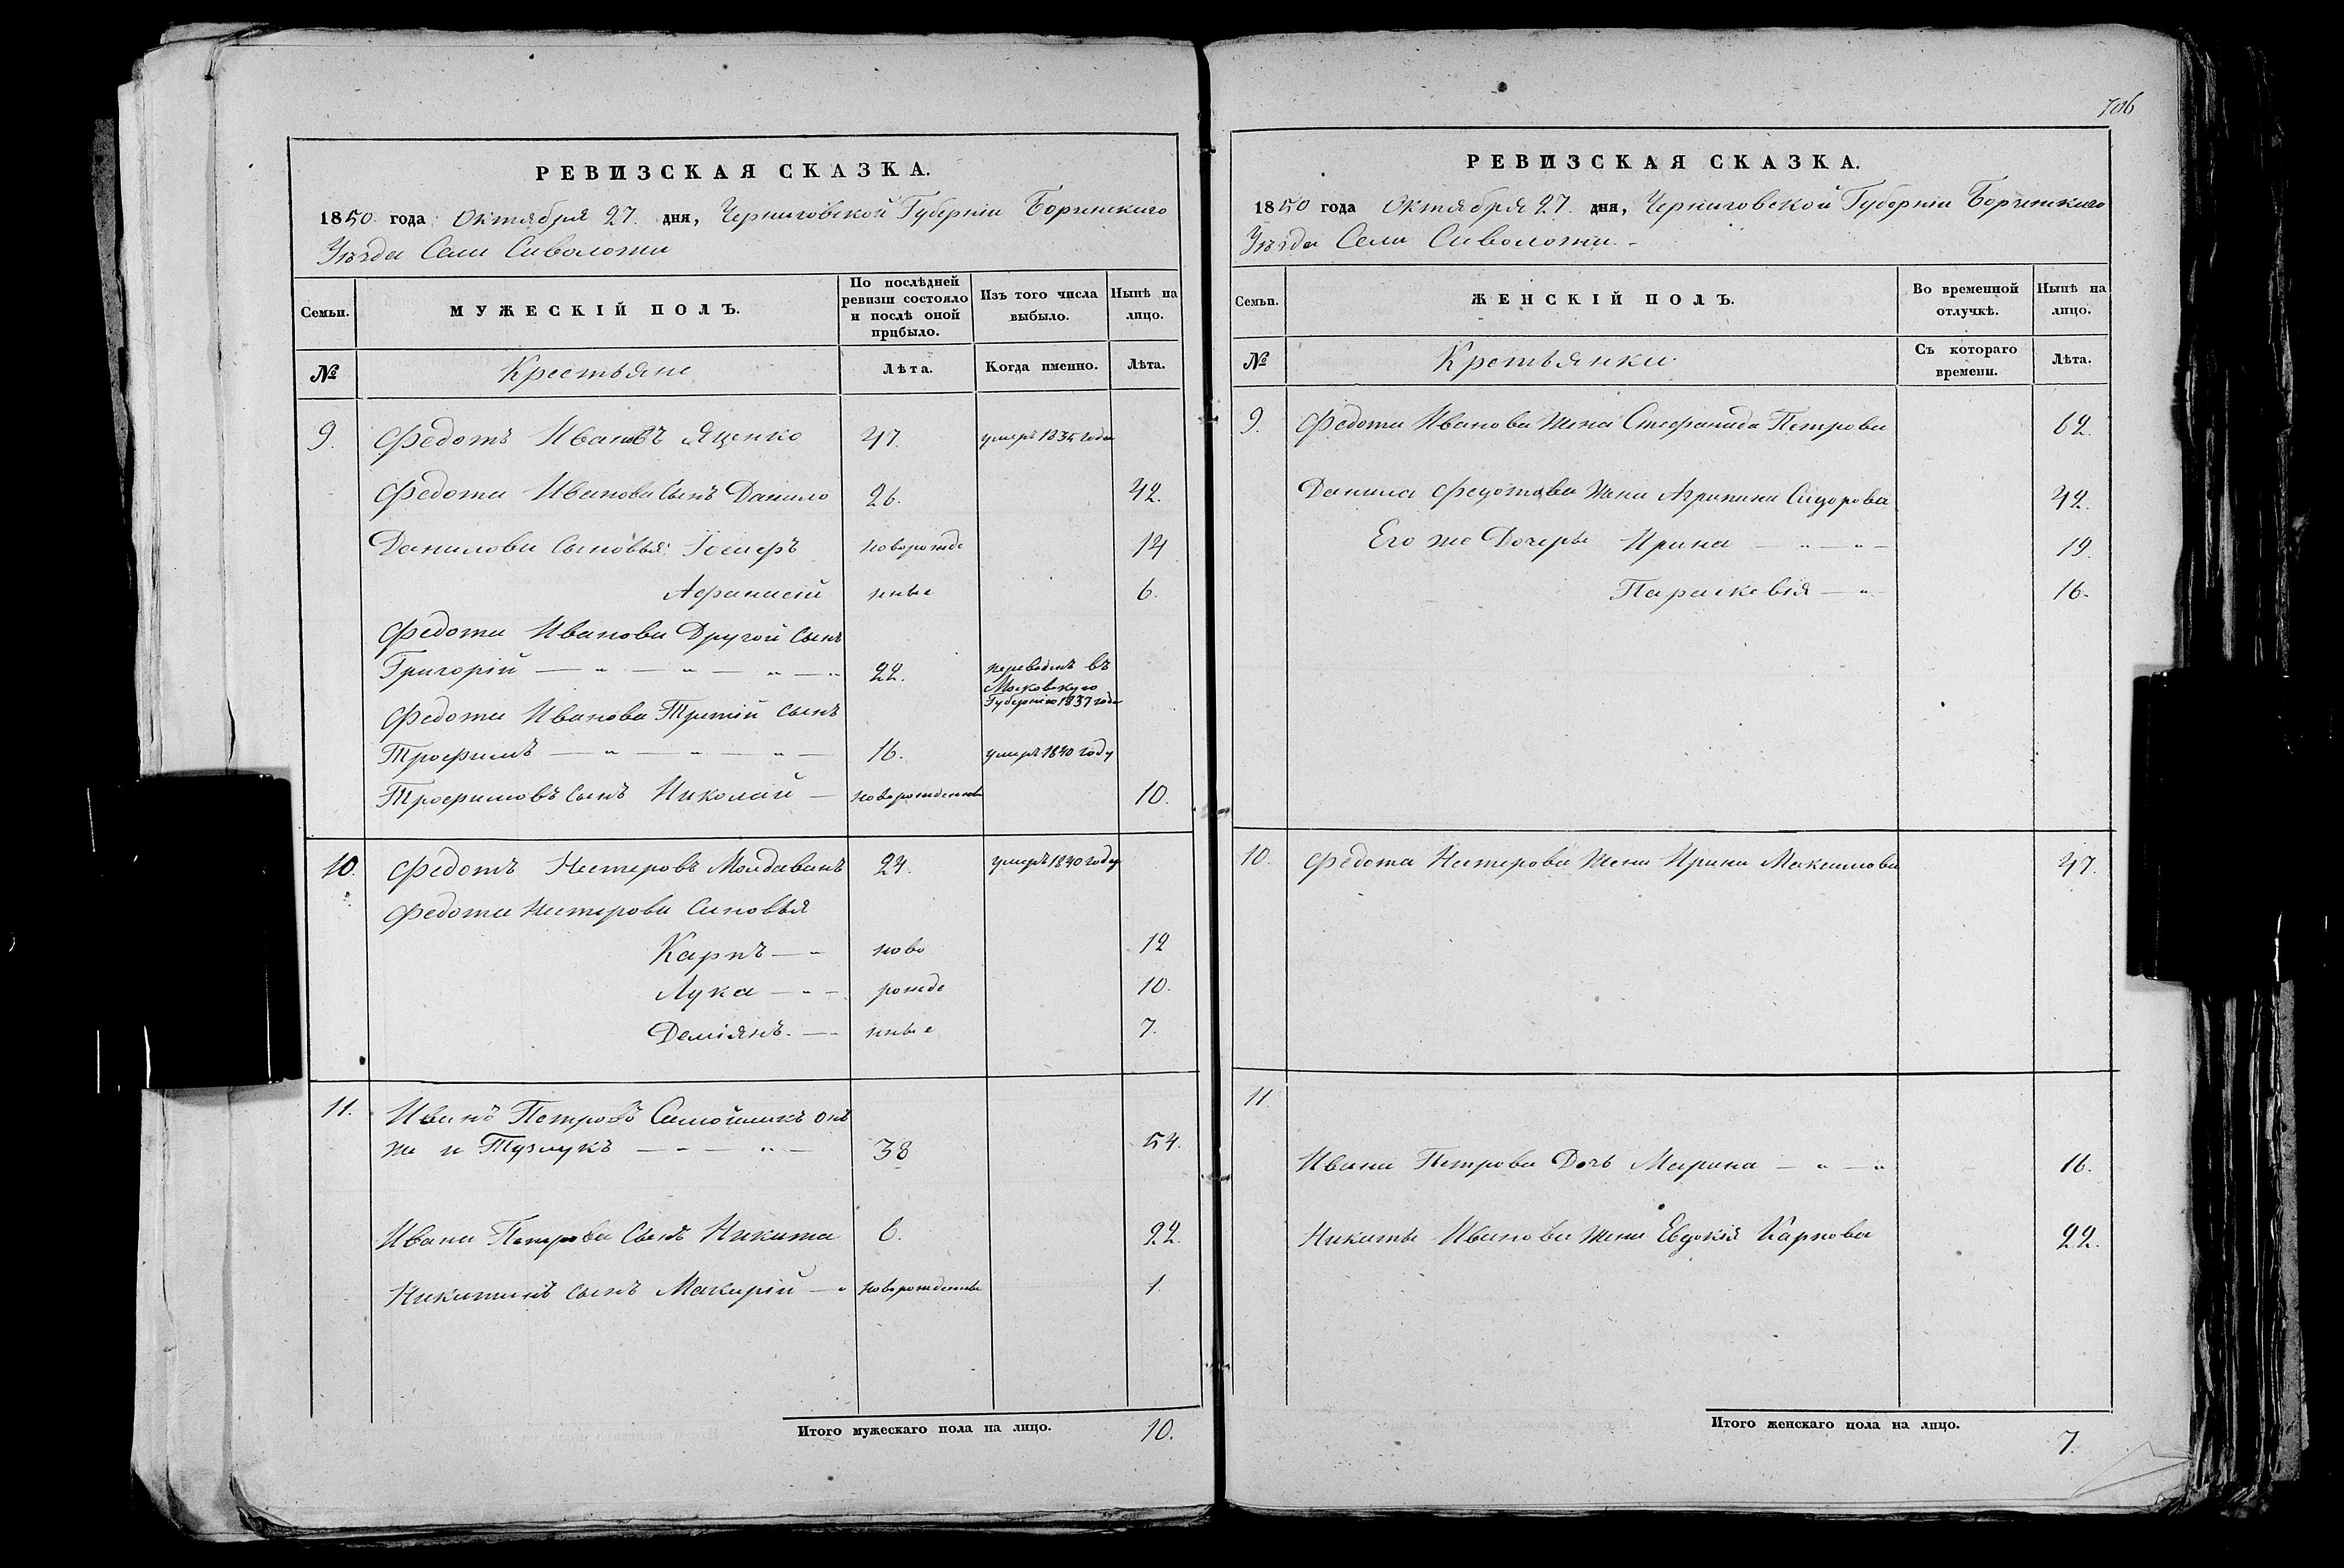 РЕВИЗСКАЯ СКАЗКА.
1850 года Октября 27. дня, Черниговской Губерніи Борзенскаго
Уѣзда Села Сиволожи
Семьи. МУЖЕСКІЙ ПОЛЪ. По послѣдней ревизіи состояло и послѣ оной прибыло. Изъ того числа выбыло. Нынѣ на лицо.
№ Крестьяне Лѣта. Когда именно. Лѣта.
9. Федотъ Ивановъ Яценко 47. умеръ 1834 года
Федота Иванова Сынъ Данило 26. 42.
Данилови Сыновья: новорожде 14
Афанасій нные 6.
Федота Иванова Другой Сынъ
Григорій — „ — „ — „ — „ 22. переведенъ въ Московскую Губернію 1837 года
Федота Иванова Третій Сынъ
Трофимъ — „ — „ — „ — 16. умеръ 1840 году
Трофимовъ Сынъ Николай — новорожденный 10.
10. Федотъ Нестеровъ Молдаванъ 24. умеръ 1840 году
Федота Нестерова Синовья
Карпъ — „ ново 12
Лука — „ — рожде 10.
Деміянъ. — „ нные 7.
11. Иванъ Петровъ Самойликъ онъ
же и Тузлукъ — „ — „ — 38 54.
Ивана Петрова Сынъ Никита 6. 22.
Никитинъ Сынъ Макарій — „ новорожденны 1.
Итого мужескаго пола на лицо. 10.
706
РЕВИЗСКАЯ СКАЗКА.
1850 года Октября 27. дня, Черниговской Губерніи Борзенскаго
Уѣзда Села Сиволожи. –
Семьи. ЖЕНСКІЙ ПОЛЪ. Во временной отлучкѣ. Нынѣ на лицо.
№ Кретьянки Съ котораго времени. Лѣта.
9. Федота Иванова жена Стефанида Петрова 62.
Данила Федотова жена Агрипина Сидорова 42.
Его же Дочеры Ирина — „ — „ — 19.
Параскевія — „ 16.
10. Федота Нестерова жена Ирина Максимова 47.
11.
Ивана Петрова Дочь Марина — „ — „ 16.
Никиты Иванова жена Евдокія Карпова 22.
Итого женскаго пола на лицо. 7.